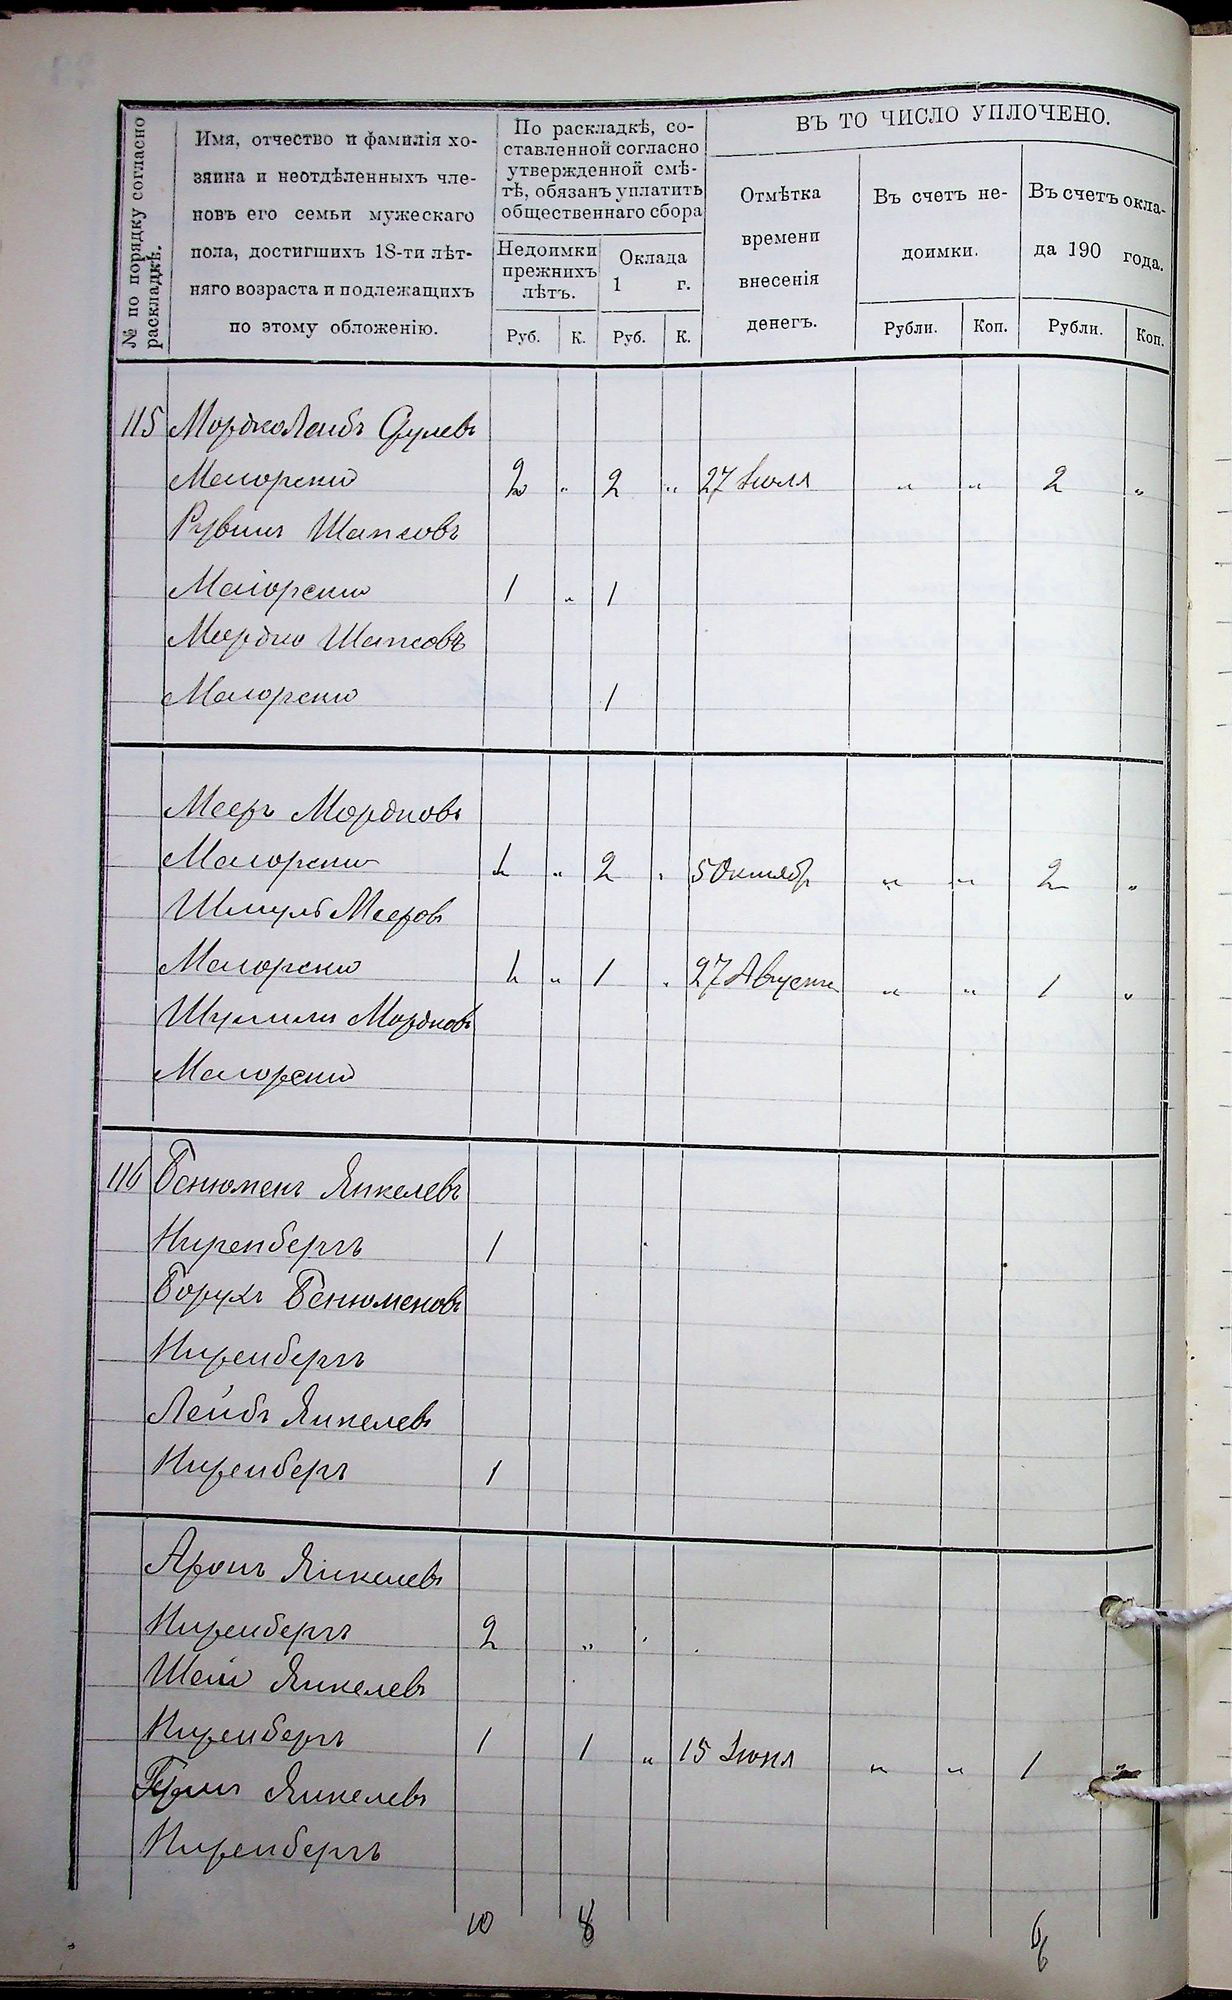 № по порядку согласно раскладкѣ.
Имя, отчество и фамилія хо-
зяина и неотдѣленныхъ чле-
новъ его семьи мужескаго
пола, достигшихъ 18-ти лѣт-
няго возраста и подлежащихъ
по этому обложенію.
По раскладкѣ, со-
ставленной согласно
утвержденной смѣ-
тѣ, обязанъ уплатить
общественнаго сбора
Недоимки
прежнихъ
лѣтъ.
Оклада
1 г.
Руб. К. Руб. К.
ВЪ ТО ЧИСЛО УПЛОЧЕНО.
Отмѣтка
времени
внесенія
денегъ.
Въ счетъ не-
доимки.
Рубли. Коп.
Въ счетъ окла-
да 190 года.
Рубли. Коп.
115 МордкоЛейбъ
Маіорскій 2 „ 2 „ 27 Іюля „ „ 2 „
Рувинъ Шапсовъ
Маіорскій 1 „ 1
Мордко Шапсовъ
Маіорскій 1
Мееръ Мордковъ
Маіорскій „ 2 „ 5 Октябр „ „ 2 „
Шмуль Мееровъ
Маіорскій „ 1 „ 27 Августа „ „ 1 „
Мордковъ
Маіорскій
116 Бенюменъ Янкелевъ
Ниренбергъ 1
Борухъ Бенюменовъ
Ниренбергъ
Лейбъ Янкелевъ
Ниренбергъ 1
Аронъ Янкелевъ
Ниренбергъ 2 „
Янкелевъ
Ниренбергъ 1 1 „ 15 „ „ 1
Янкелевъ
Ниренбергъ
10 8 6
6